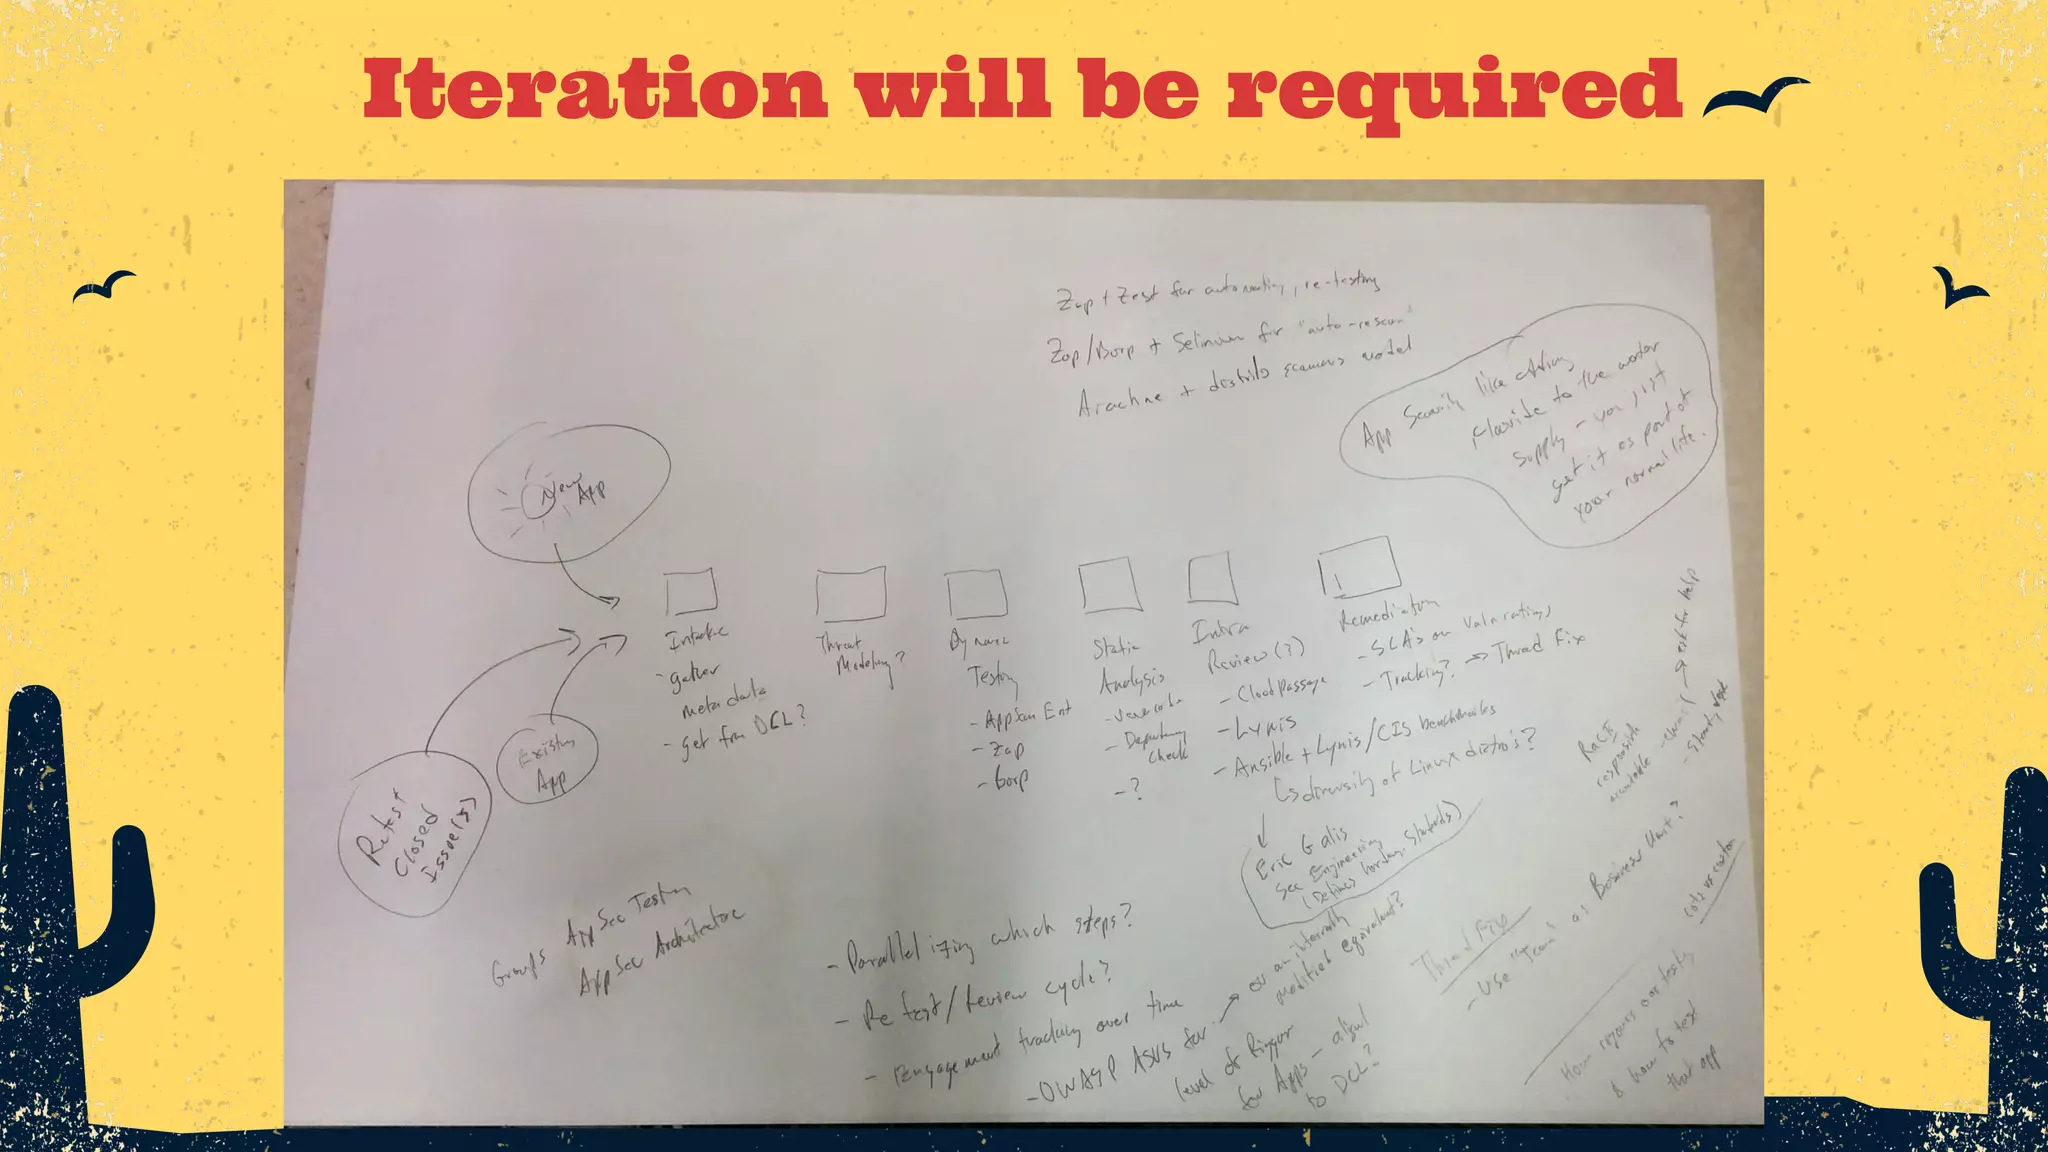 Iteration will be required
Zap + Zest for automation, re-testing
Zap/Borp + Selinium for "auto-rescan"
Arachne + distrib scanners model
App Security like adding
flouride to the water
supply - you just
get it as part of
your normal life.
New
App
Existing
App
Retest
Closed
Issue(s)
Intake
- gather
metadata
- get from DCL?
Threat
Modeling?
Dynamic
Testing
- AppScan Ent
- Zap
- Borp
Static
Analysis
- Veracode
- Dependency
Check
- ?
Infra
Review (?)
- Cloudpassage
- Lynis
- Ansible + Lynis/CIS benchmarks
↳ diversity of Linux distro's?
Eric Galis
Sec Engineering
(Defines harden. standards)
Remediation
- SLA's on vuln ratings
- Tracking? → Thread Fix
RACI
responsible
accountable
→ ask for help
Groups AppSec Testing
AppSec Architecture
- Parallelizing which steps?
- Retest/Review cycle?
- Engagement tracking over time
- OWASP ASVS for → or an internally
modified equivalent?
level of Rigger
for Apps - align
to DCL?
Thread Fix
- Use "Team" as Business Unit?
cots vs custom
How rigours our testing
& how to test
that app